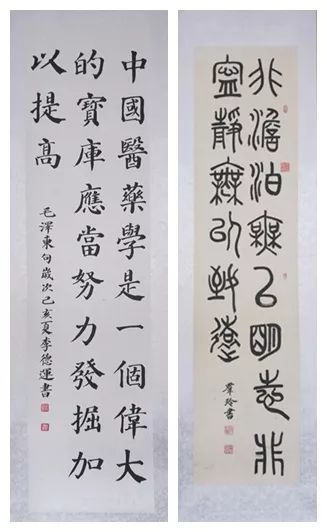 中國醫藥學是一個偉大
的寶庫應當努力發掘加
以提高
毛澤東句歲次己亥夏李德運書
非澹泊無以明志非
寧靜無以致遠
羣玲書